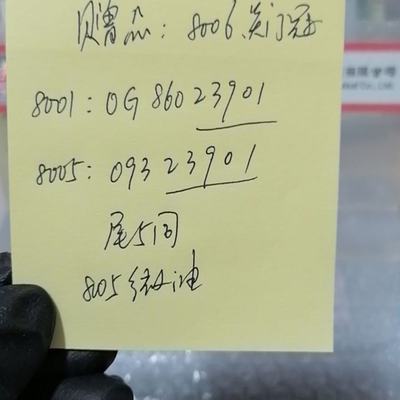 赠品：8006.关门冠
8001：OG86023901
8005：09323901
尾5同
8005绿油
有限公司